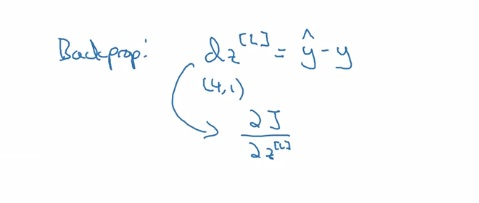 Backprop: dz^[L] = ŷ - y
(4,1)
∂J
∂z^[L]